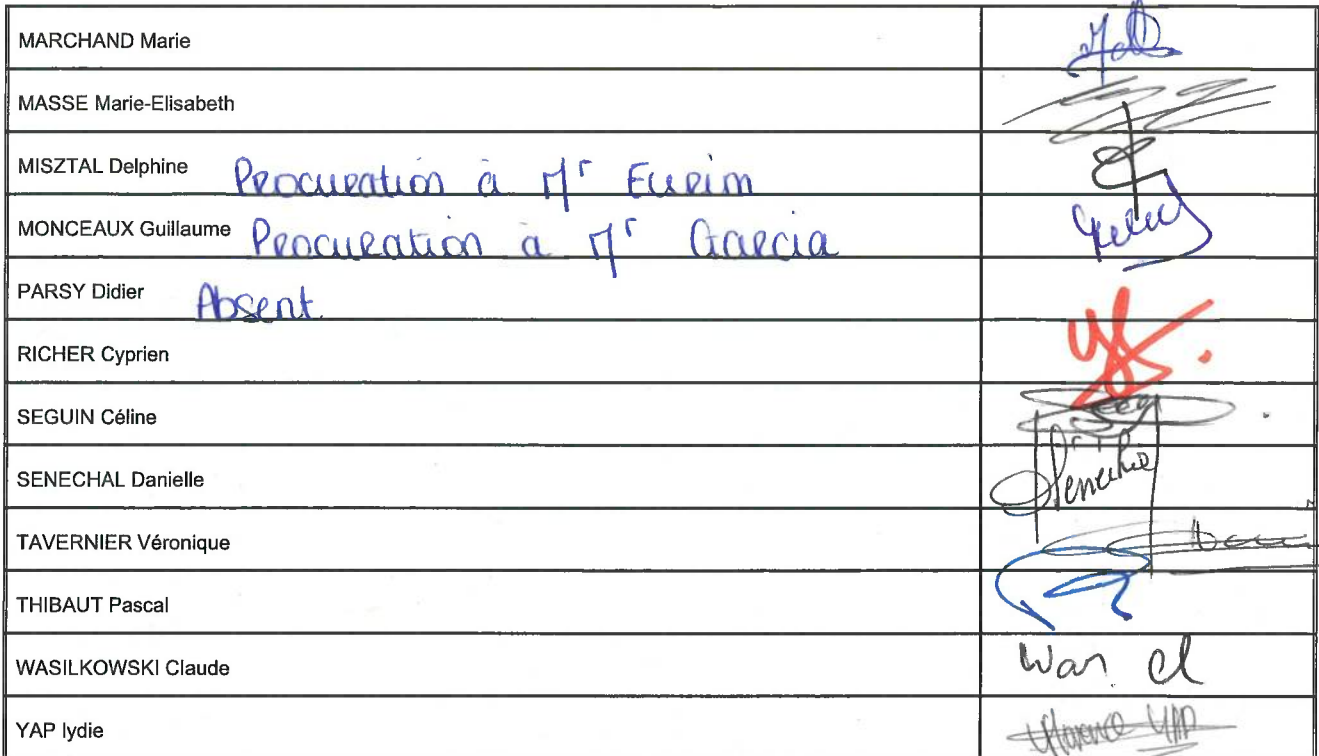 MARCHAND Marie
MASSE Marie-Elisabeth
MISZTAL Delphine Procuration à Mr Eurim
MONCEAUX Guillaume Procuration à Mr Garcia
PARSY Didier Absent
RICHER Cyprien
SEGUIN Céline
SENECHAL Danielle
TAVERNIER Véronique
THIBAUT Pascal
WASILKOWSKI Claude Was cl
YAP lydie YAP